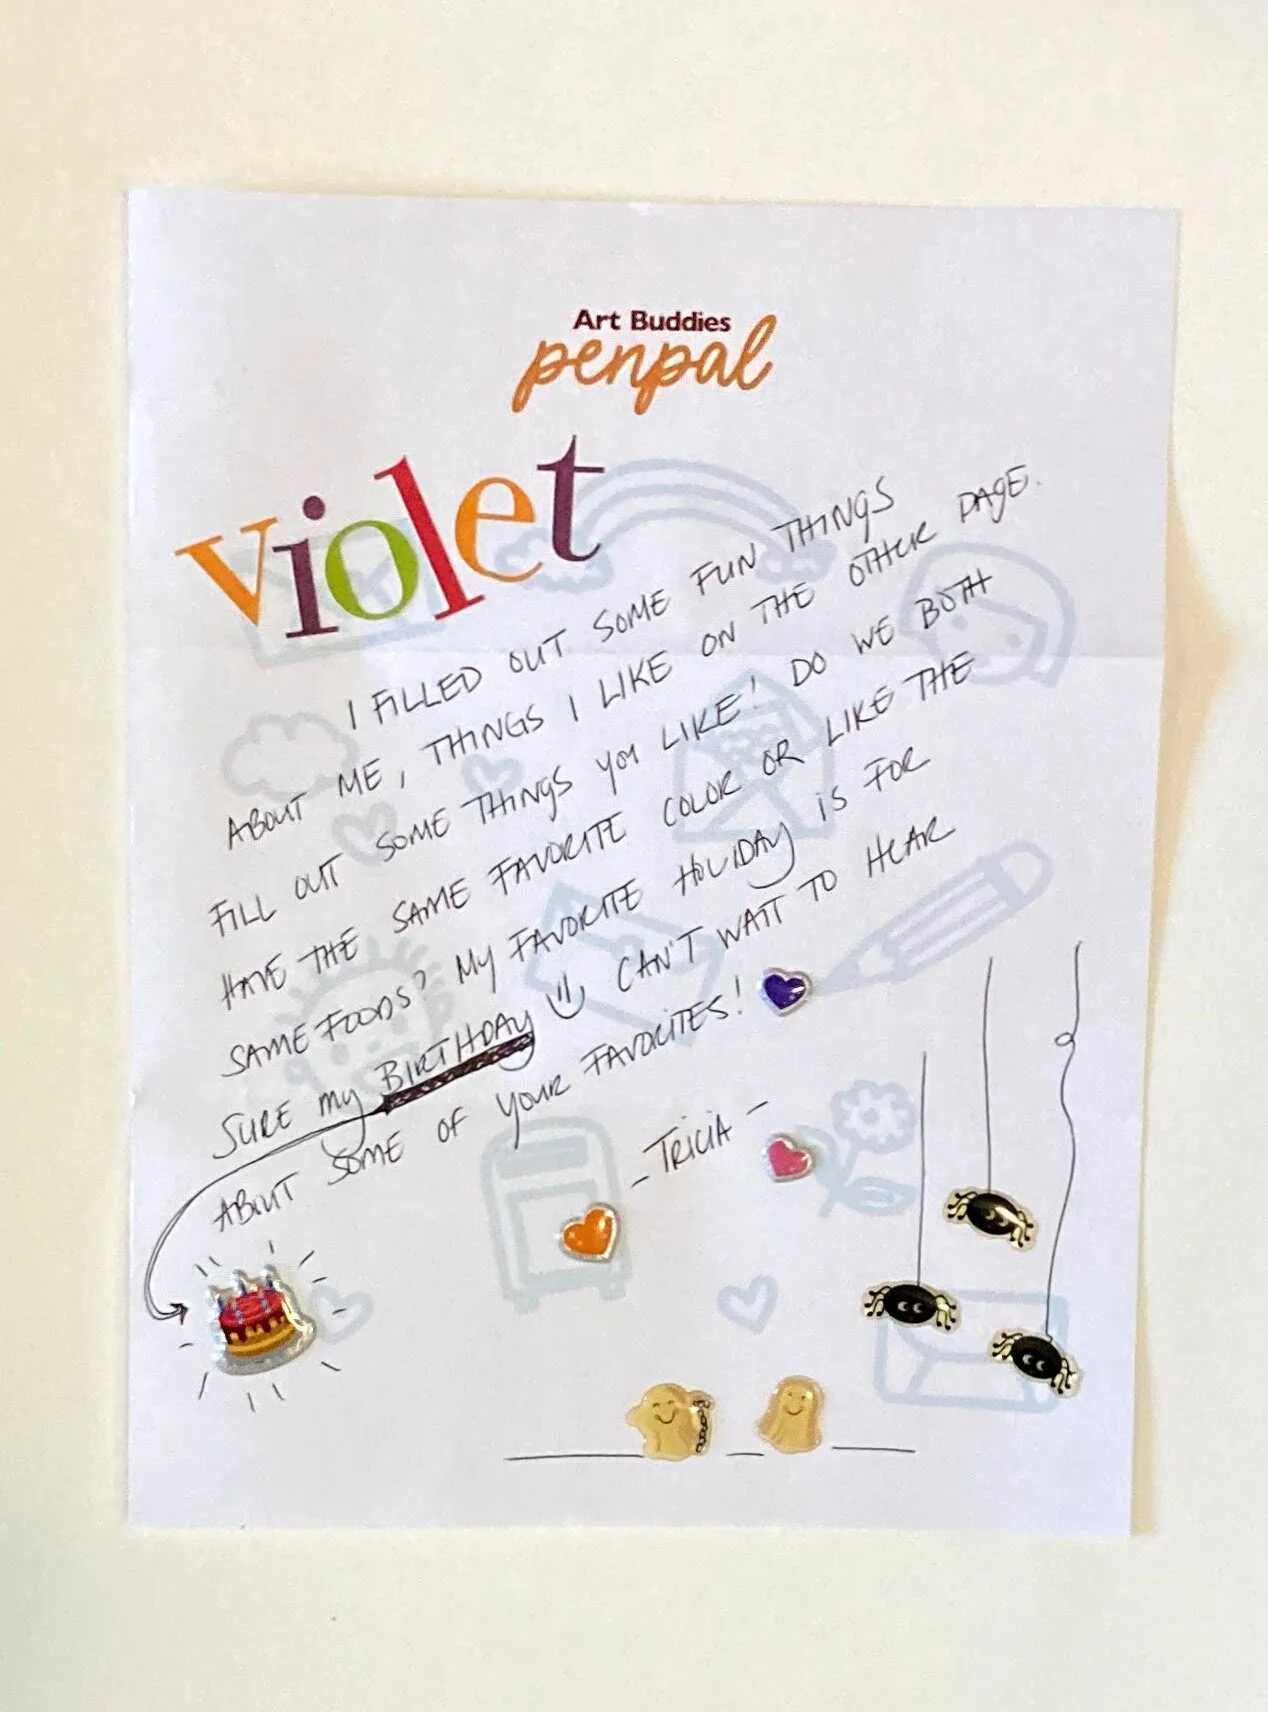 Art Buddies
penpal
violet
I FILLED OUT SOME FUN THINGS
ABOUT ME, THINGS I LIKE ON THE OTHER PAGE.
FILL OUT SOME THINGS YOU LIKE! DO WE BOTH
HAVE THE SAME FAVORITE COLOR OR LIKE THE
SAME FOODS? MY FAVORITE HOLIDAY IS FOR
SURE MY BIRTHDAY CAN'T WAIT TO HEAR
ABOUT SOME OF YOUR FAVORITES!
- TRICIA -